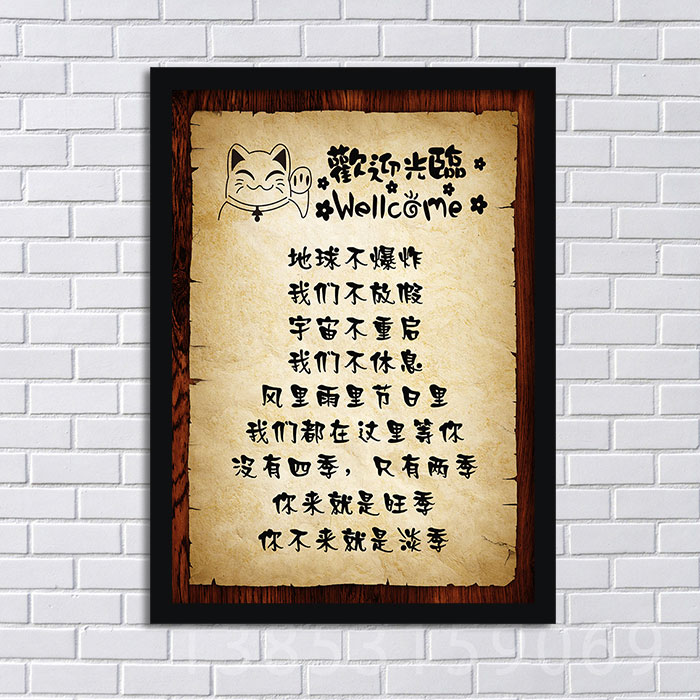 歡迎光臨
Wellcome
地球不爆炸
我们不放假
宇宙不重启
我们不休息
风里雨里节日里
我们都在这里等你
没有四季，只有两季
你来就是旺季
你不来就是淡季
13853159069